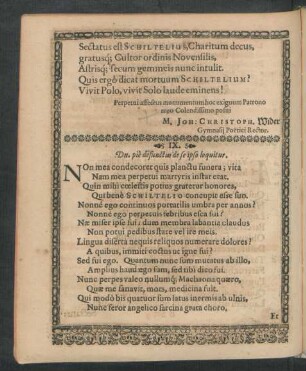 Sectatus est SCHILTELIUS, Charitum decus,
gratusq; Cultor ordinis Novensilis,
Astrisq; secum gemmeis nunc intulit.
Quis ergò dicat mortuum SCHELTELIUM?
Vivit Polo, vivit Solo laude eminens!
Perpetui affectus monumentum hoc exiguum Patrono
suo Colendissimo posuit
M. JOH: CHRISTOPH.
Gymnasij Poëtici Rector.
IX.
Dn. piè defunctus de se ipso loquitur.
NOn mea condecoret quis planctu funera; vita
Nam mea perpetui martyris instar erat,
Quin mihi cœlestis potius gratetur honores,
Qui benè SCHILTELIO concupit esse suo.
Nonnè ego continuos portatilis umbra per annos?
Nonnè ego perpetuis febribus esca fui?
Næ miser ipse fui: dum membra labantia claudos
Non potui pedibus stare vel ire meis.
Lingua diserta nequis reliquos numerare dolores?
A quibus, intuiti vortus ut igne fui?
Sed fui ego. Quantum nunc sum mutatus ab illo,
Amplius haud ego sum, sed tibi dico fui.
Nunc perpes valeo nullumq; Machaona quæro,
Quæ me sanavit, mors, medicina fuit.
Qui modò bis quatuor sum latus inermis ab ulnis,
Nunc feror angelico sarcina grata choro,
Et